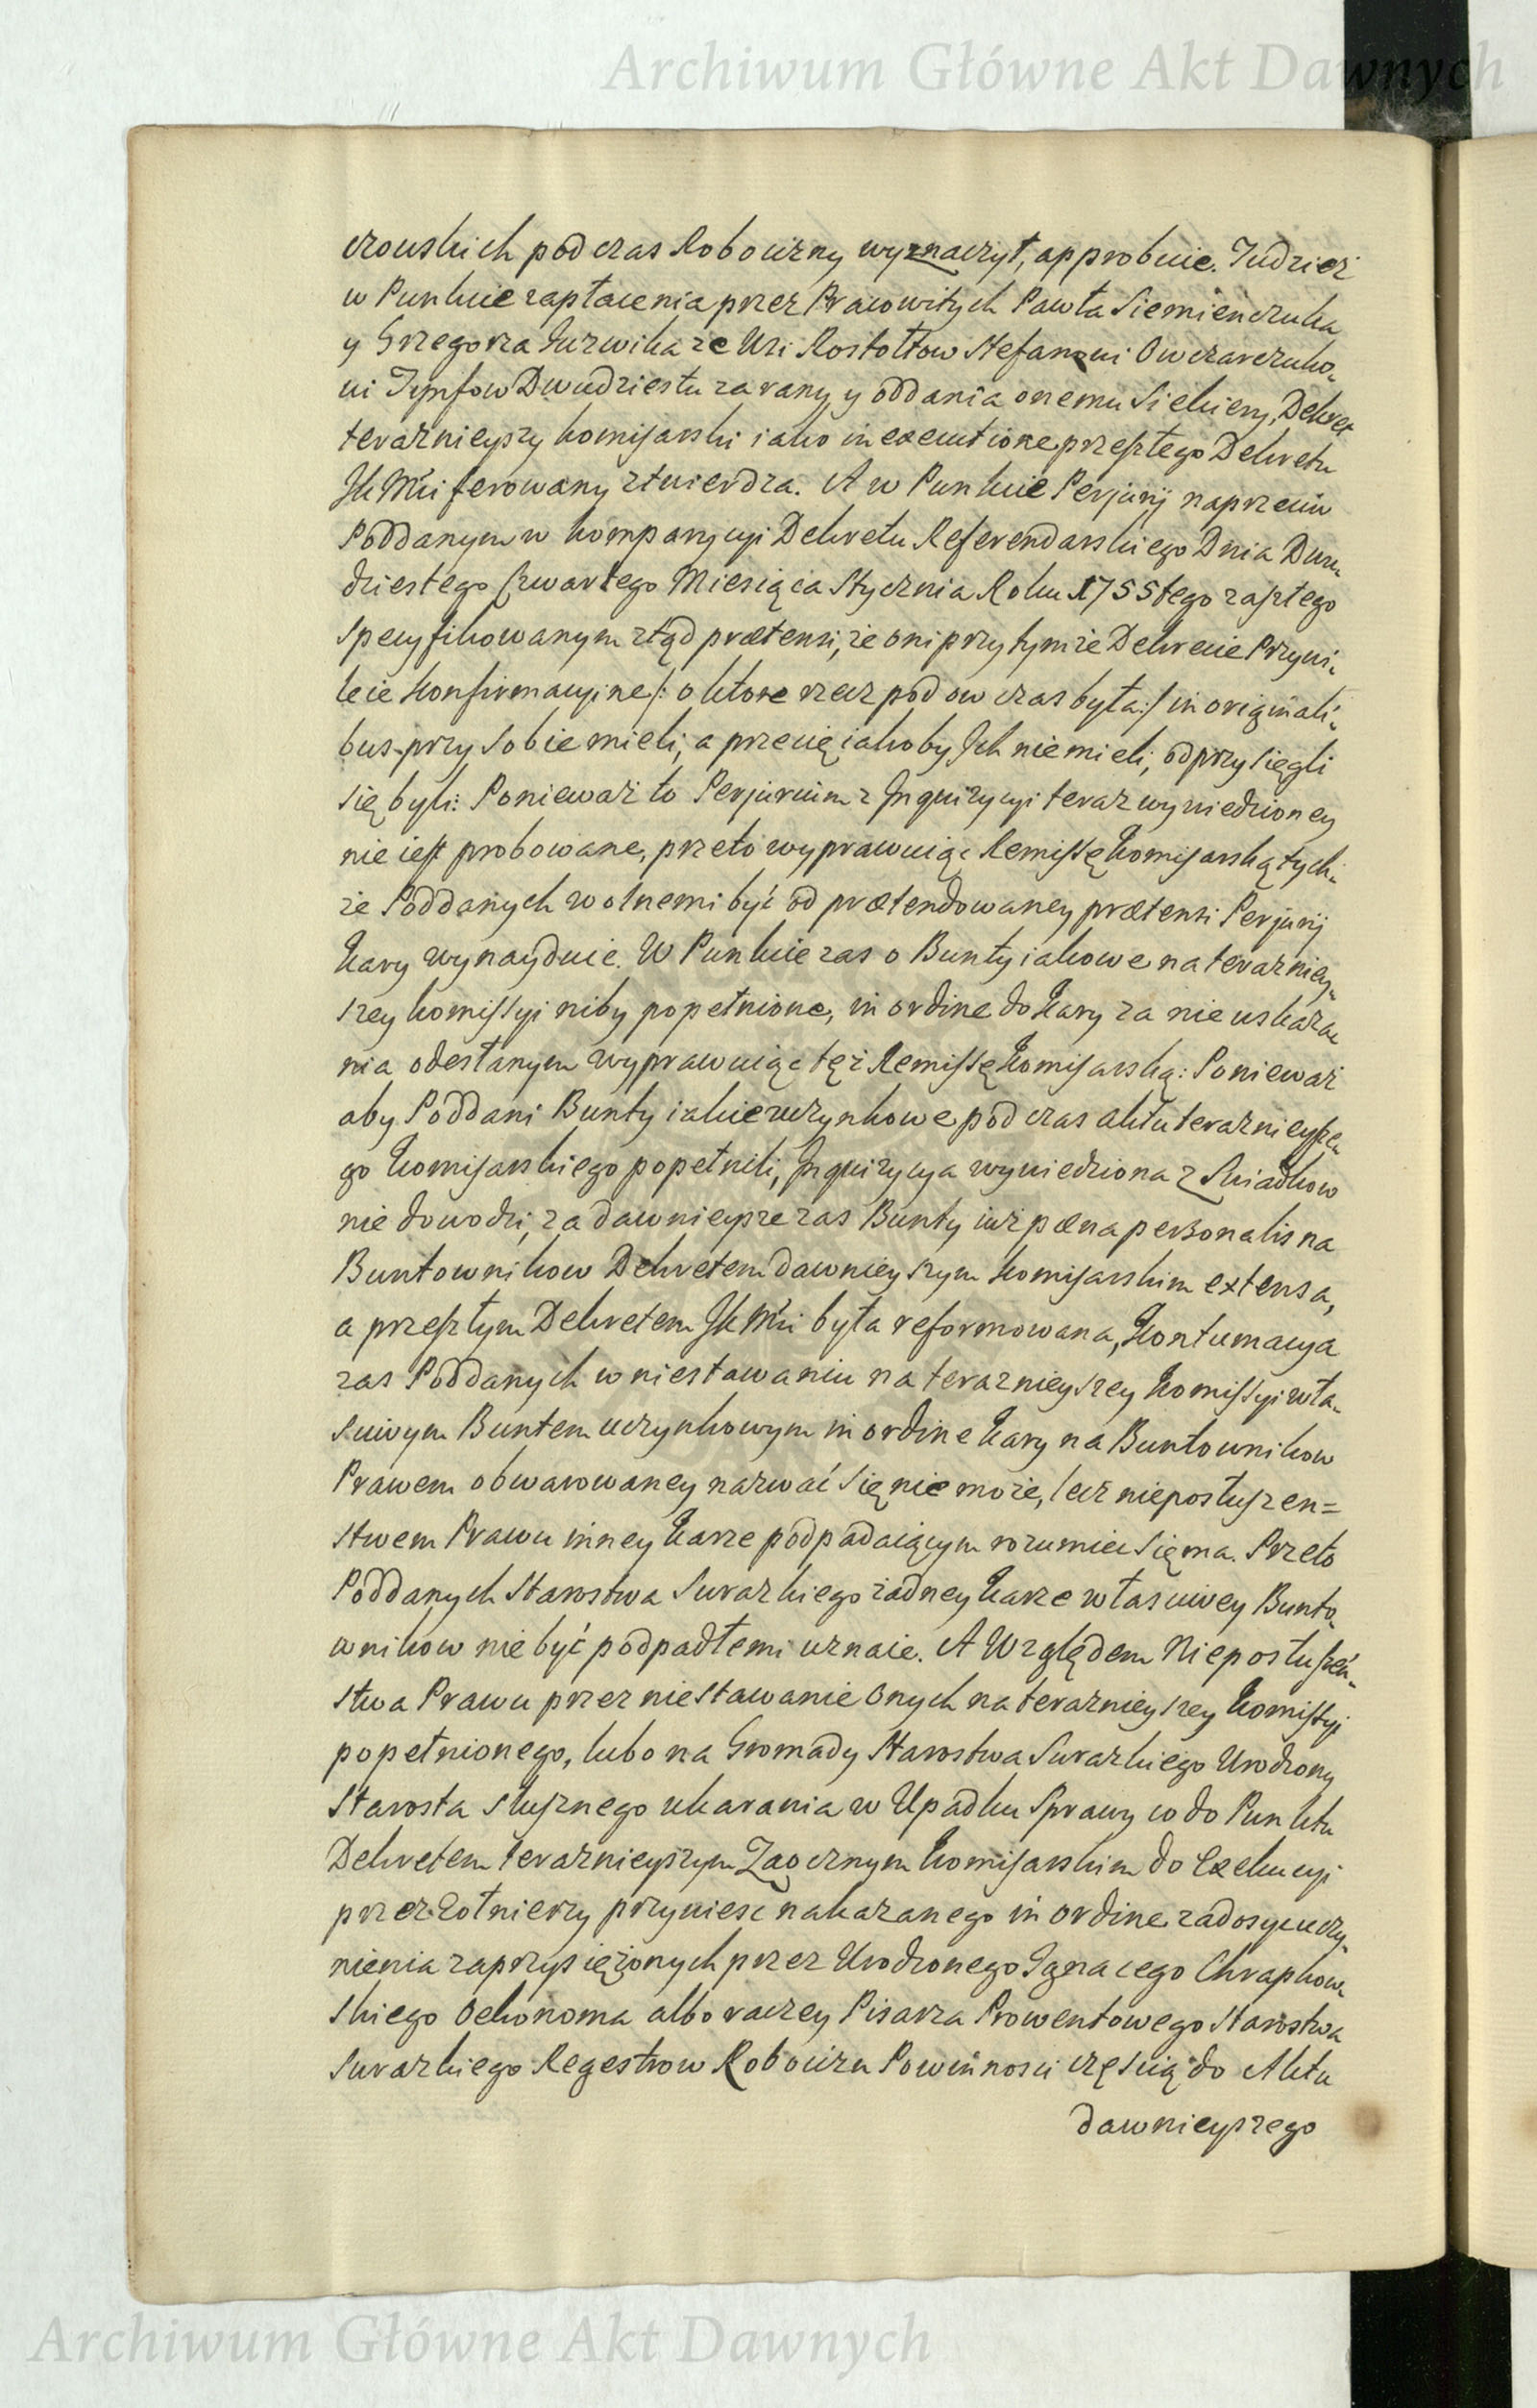 Archiwum Główne Akt Dawnych
czouskich podczas Robocizny wyznaczył, approbuie. Tudziesz
w Punkcie zapłacenia przez Pracowitych Pawła Siemienczuka
y Grzegorza Gurwika ze Wsi Rostołtow Stefanowi Owczarczuko„
wi Tynfow Dwudziestu za rany y oddania onemu Siekiery, Dekret
teraznieyszy komisarski iako in executione przeszłego Dekretu
JkMći ferowany ztwierdza. A w Punkcie Perjurij naprzeciw
Poddanym w kompanycyi Dekretu Referendarskiego Dnia Dwu„
dziestego Czwartego Miesiąca Stycznia Roku 1755tego zaszłego
specyfikowanym ztąd prætensi, że oni przy tymże Dekrecie Przywi„
leie Konfirmacyine /: o ktore rzecz podowczas była :/ in originali„
bus przy sobie mieli, a przecię iakoby Jch niemieli, odprzysięgli
się byli: Ponieważ to Perjurium z Jnquizycyi teraz wywiedzioney
nie iest probowane, przeto wyprawuiąc Remissę Komisarską tych„
że Poddanych wolnemi być od prætendowaney prætensi Perjurij
Kary wynayduie. W Punkcie zas o Bunty iakowe na terazniey„
szey komissyi niby popełnione, in ordine do Kary za nie uskaza„
nia odesłanym wyprawuiąc tęż Remissę Komisarską: Ponieważ
aby Poddani Bunty iakie uczynkowe podczas aktu teraznieysze„
go Komisarskiego popełnili, Jnquizycya wywiedziona z Swiadkow
nie dowodzi, za dawnieysze zas Bunty iuż pæna personalis na
Buntownikow Dekretem dawnieyszym Komisarskim extensa,
a przeszłym Dekretem JkMći była reformowana, Kontumacya
zas Poddanych w niestawaniu na teraznieyszey Komissyi wła„
sciwym Buntem uczynkowym in ordine Kary na Buntownikow
Prawem obwarowaney nazwać się nie może, lecz nieposłuszen=
stwem Prawu inney Karze podpadaiącym rozumiec się ma. Przeto
Poddanych Starostwa Surazkiego żadney Karze własciwey Bunto„
wnikow nie być podpadłemi uznaie. A Względem Nieposłuszeń„
stwa Prawu przez niestawanie onych na teraznieyszey Komissyi
popełnionego, lubo na Gromady Starostwa Surazkiego Urodzony
Starosta słusznego ukarania w Upadku Sprawy co do Punktu
Dekretem teraznieyszym Zaocznym Komisarskim do Exekucyi
przez Zołnierzy przywiesc nakazanego in ordine zadosycuczy„
nienia zaprzysiężonych przez Urodzonego Jgnacego Chrapkow„
skiego Oekonoma albo raczey Pisarza Prowentowego Starostwa
Surazkiego Regestrow Robocizn Powinnosci częscią do Aktu
dawnieyszego
Archiwum Główne Akt Dawnych